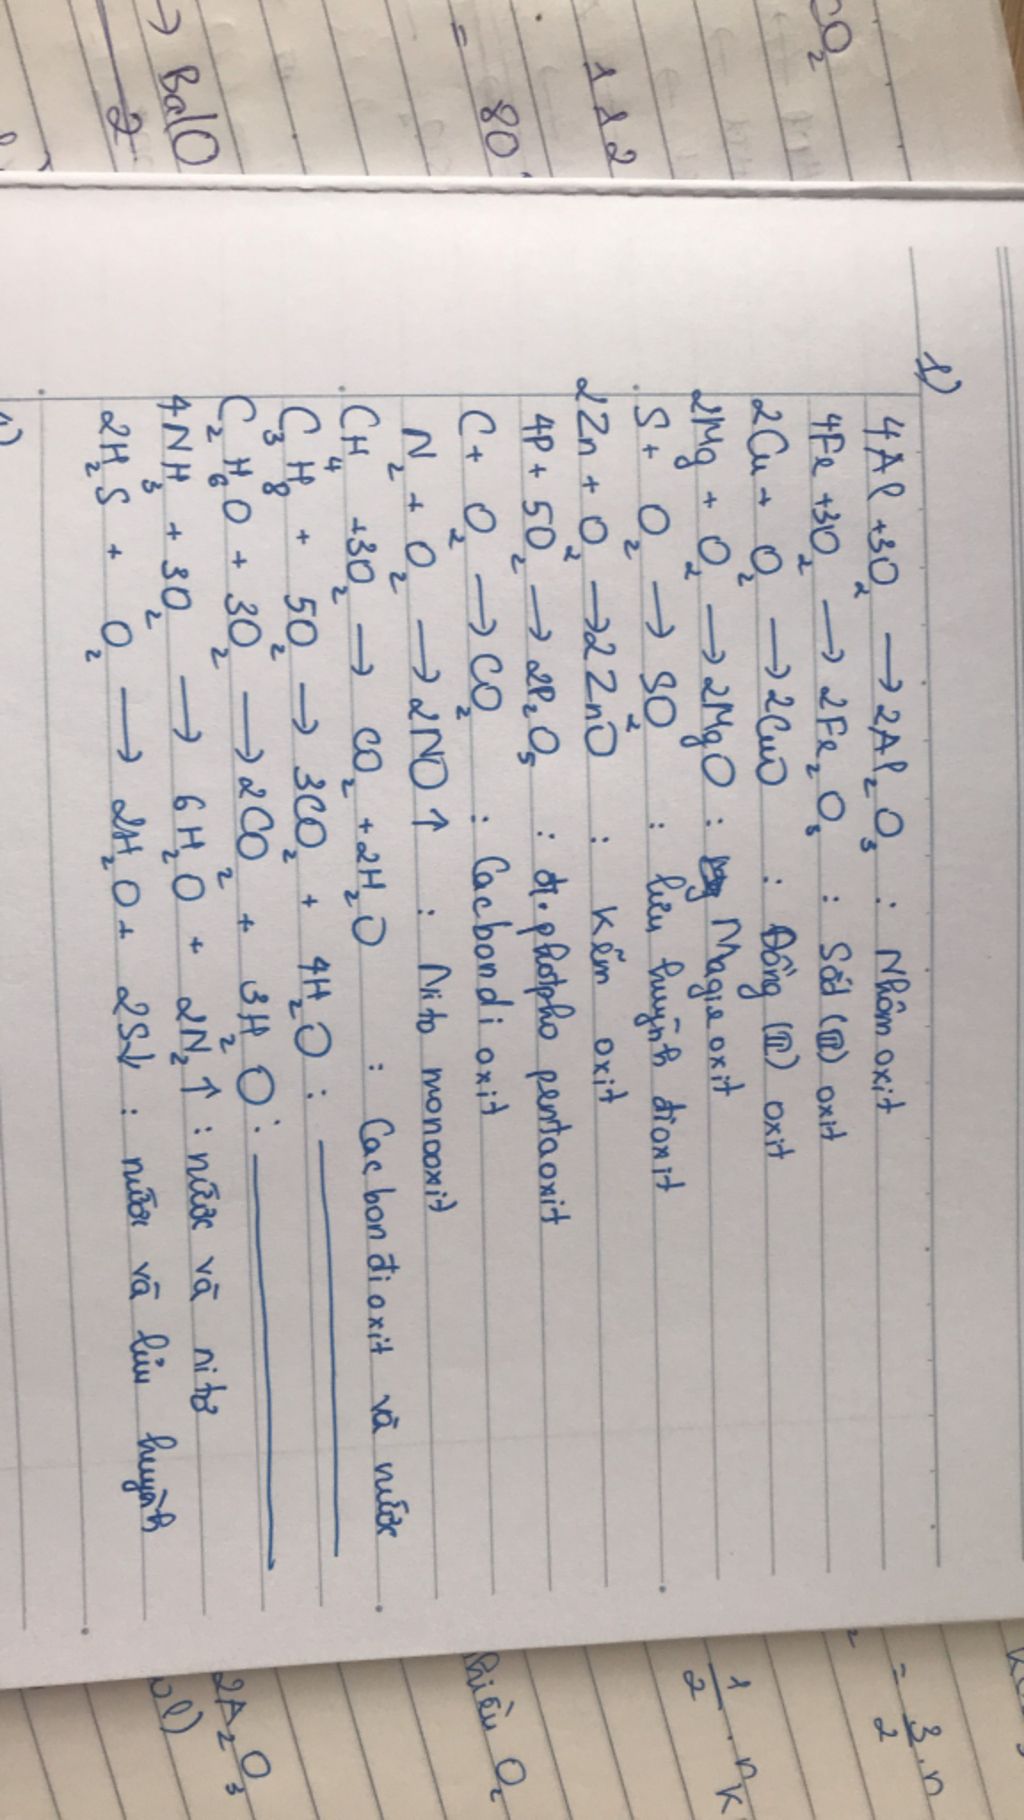 1)
4Al + 3O₂ → 2Al₂O₃ : Nhôm oxit
4Fe + 3O₂ → 2Fe₂O₃ : Sắt (III) oxit
2Cu + O₂ → 2CuO : Đồng (II) oxit
2Mg + O₂ → 2MgO : Magie oxit
S + O₂ → SO₂ : lưu huỳnh đioxit
2Zn + O₂ → 2ZnO : kẽm oxit
4P + 5O₂ → 2P₂O₅ : đi photpho pentaoxit
C + O₂ → CO₂ : Cacbon đi oxit
N₂ + O₂ → 2NO ↑ : Nito monooxit
CH₄ + 3O₂ → CO₂ + 2H₂O : Cacbon đi oxit và nước
C₃H₈ + 5O₂ → 3CO₂ + 4H₂O :
C₂H₆O + 3O₂ → 2CO₂ + 3H₂O :
4NH₃ + 3O₂ → 6H₂O + 2N₂ ↑ : nước và nitơ
2H₂S + O₂ → 2H₂O + 2S↓ : nước và lưu huỳnh
CO₂
112
= 80
→ BaO
2
= 3/2 . n
1/2 . nK
nhiêu O₂
2A₂O₃
ol)